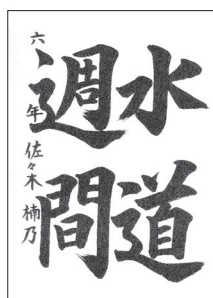 水道
週間
六年 佐々木 楠乃